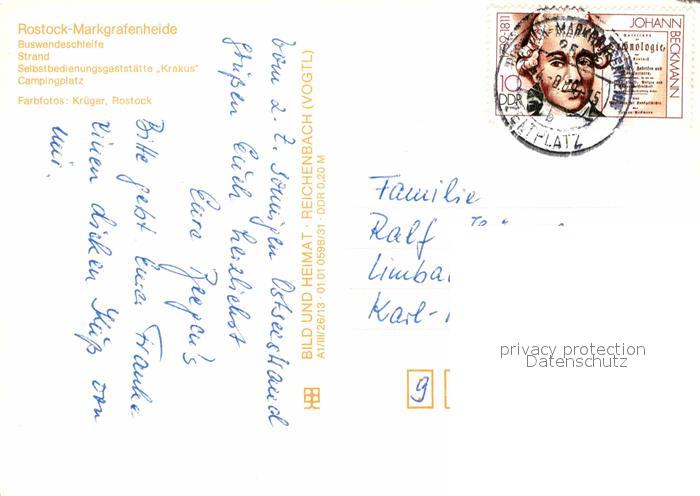 Rostock-Markgrafenheide
Buswendeschleife
Strand
Selbstbedienungsgaststätte „Krakus"
Campingplatz
Farbfotos: Krüger, Rostock
Vom z. Z. sonnigen Ostseestrand
grüßen Euch herzlichst
Eure
Bitte gebt Eurer Frauke
einen dicken Kuß von
mir.
BILD UND HEIMAT · REICHENBACH (VOGTL)
A1/III/26/13 · 01 01 0598/31 · DDR 0,20 M
JOHANN
BECKMANN
1739-1811
Technologie
10
DDR
ZELTPLATZ
Familie
Ralf
Limba
Karl-
9
privacy protection
Datenschutz